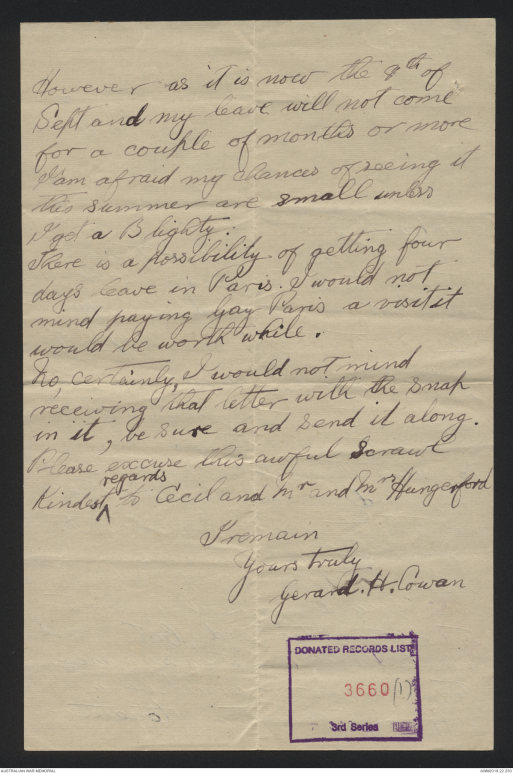 However as it is now the 9th of
Sept and my leave will not come
for a couple of months or more
I'am afraid my chances of seeing it
this summer are small unless
I get a Blighty.
There is a possibility of getting four
days leave in Paris. I would not
mind paying Gay Paris a visit it
would be worth while.
No, certainly, I would not mind
receiving that letter with the snap
in it, be sure and send it along.
Please excuse this awful scrawl
regards
Kindest ^ to Cecil and Mr and Mrs Hungerford
I remain
Yours truly
Gerard. H. Cowan
DONATED RECORDS LIST
3660 (1)
3rd Series
AUSTRALIAN WAR MEMORIAL